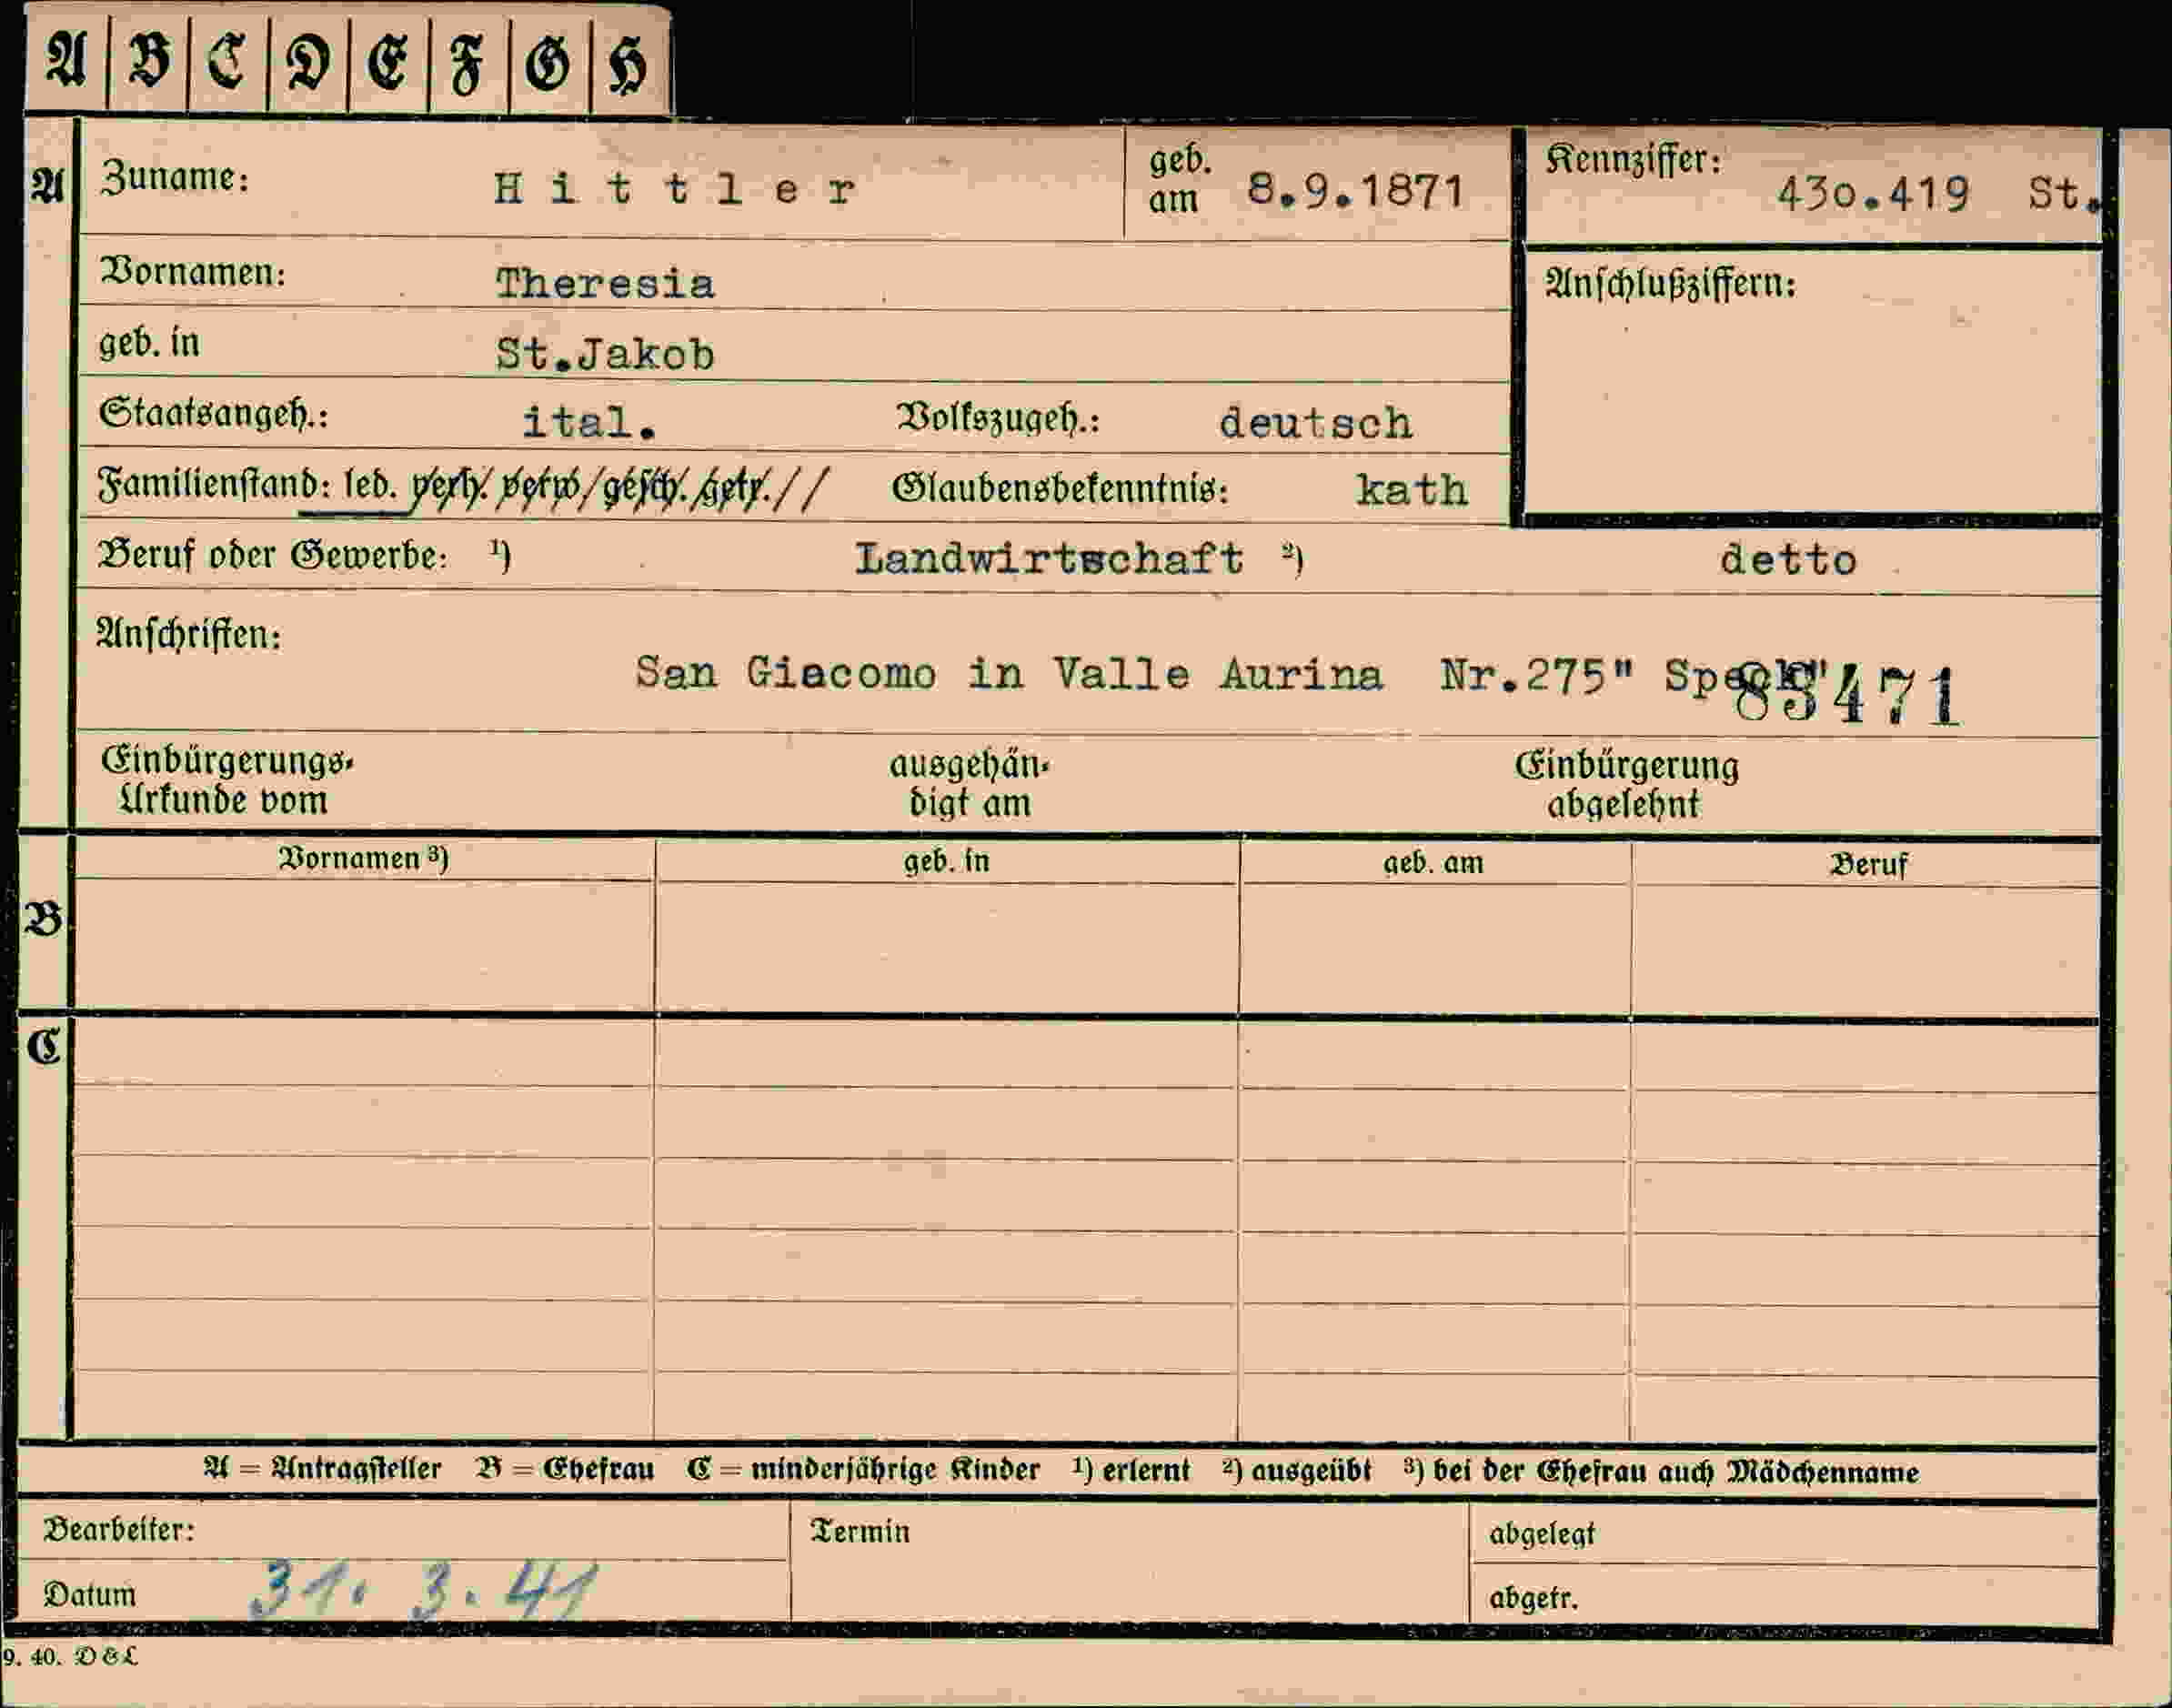 A B C D E F G H
A Zuname: Hittler geb. am 8.9.1871 Kennziffer: 430.419 St.
Vornamen: Theresia Anschlußziffern:
geb. in St.Jakob
Staatsangeh.: ital. Volkszugeh.: deutsch
Familienstand: led. verh. verw/gesch./getr.// Glaubensbekenntnis: kath
Beruf oder Gewerbe: ¹) Landwirtschaft ²) detto
Anschriften:
San Giacomo in Valle Aurina Nr.275" Speck"
83471
Einbürgerungs- ausgehän- Einbürgerung
Urkunde vom digt am abgelehnt
Vornamen ³) geb. in geb. am Beruf
B
C
A = Antragsteller B = Ehefrau C = minderjährige Kinder ¹) erlernt ²) ausgeübt ³) bei der Ehefrau auch Mädchenname
Bearbeiter: Termin abgelegt
Datum 31. 3. 41 abgetr.
9. 40. D & L